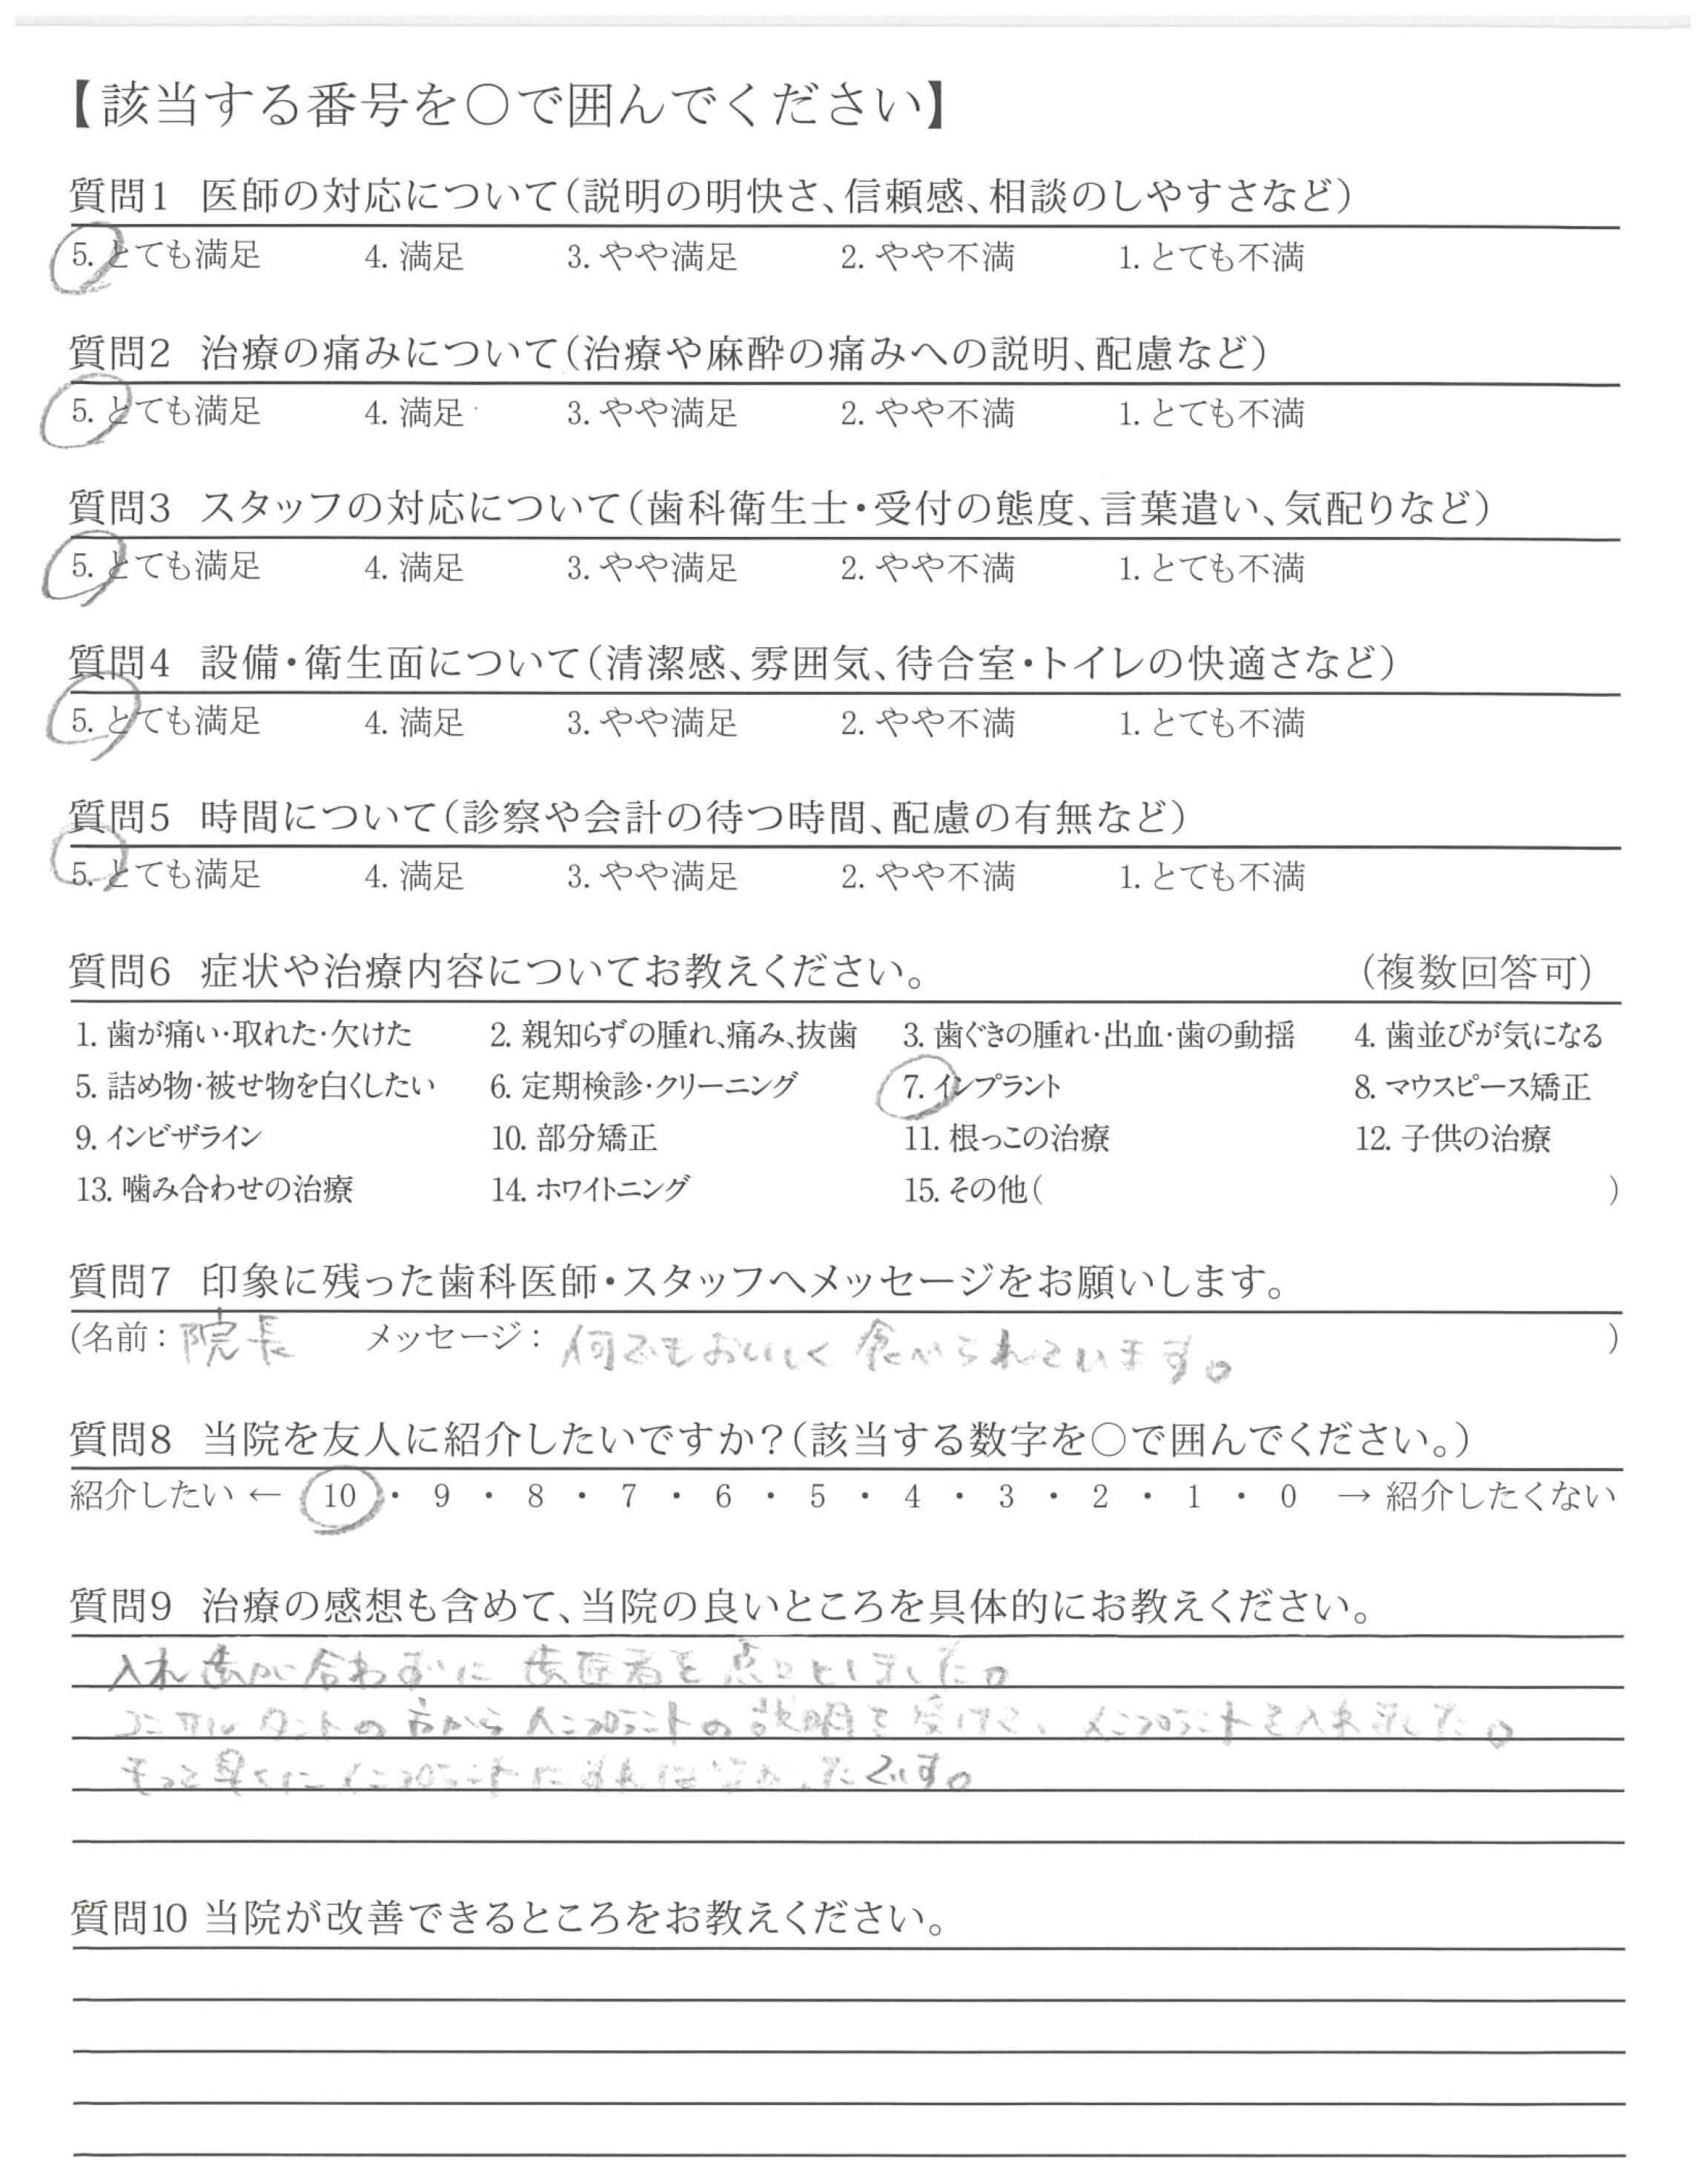 【該当する番号を○で囲んでください】
質問1 医師の対応について(説明の明快さ、信頼感、相談のしやすさなど)
5. とても満足 4. 満足 3. やや満足 2. やや不満 1. とても不満
質問2 治療の痛みについて(治療や麻酔の痛みへの説明、配慮など)
5. とても満足 4. 満足 3. やや満足 2. やや不満 1. とても不満
質問3 スタッフの対応について(歯科衛生士・受付の態度、言葉遣い、気配りなど)
5. とても満足 4. 満足 3. やや満足 2. やや不満 1. とても不満
質問4 設備・衛生面について(清潔感、雰囲気、待合室・トイレの快適さなど)
5. とても満足 4. 満足 3. やや満足 2. やや不満 1. とても不満
質問5 時間について(診察や会計の待つ時間、配慮の有無など)
5. とても満足 4. 満足 3. やや満足 2. やや不満 1. とても不満
質問6 症状や治療内容についてお教えください。 (複数回答可)
1. 歯が痛い・取れた・欠けた 2. 親知らずの腫れ、痛み、抜歯 3. 歯ぐきの腫れ・出血・歯の動揺 4. 歯並びが気になる
5. 詰め物・被せ物を白くしたい 6. 定期検診・クリーニング 7. インプラント 8. マウスピース矯正
9. インビザライン 10. 部分矯正 11. 根っこの治療 12. 子供の治療
13. 噛み合わせの治療 14. ホワイトニング 15. その他( )
質問7 印象に残った歯科医師・スタッフへメッセージをお願いします。
(名前: 院長 メッセージ: 何でもおいしく食べられています。 )
質問8 当院を友人に紹介したいですか?(該当する数字を○で囲んでください。)
紹介したい ← 10 ・ 9 ・ 8 ・ 7 ・ 6 ・ 5 ・ 4 ・ 3 ・ 2 ・ 1 ・ 0 → 紹介したくない
質問9 治療の感想も含めて、当院の良いところを具体的にお教えください。
入れ歯が合わずに歯医者を点々としました。
コンサルタントの方からインプラントの説明を受けて、インプラントを入れました。
もっと早くにインプラントにすれば良かったです。
質問10 当院が改善できるところをお教えください。